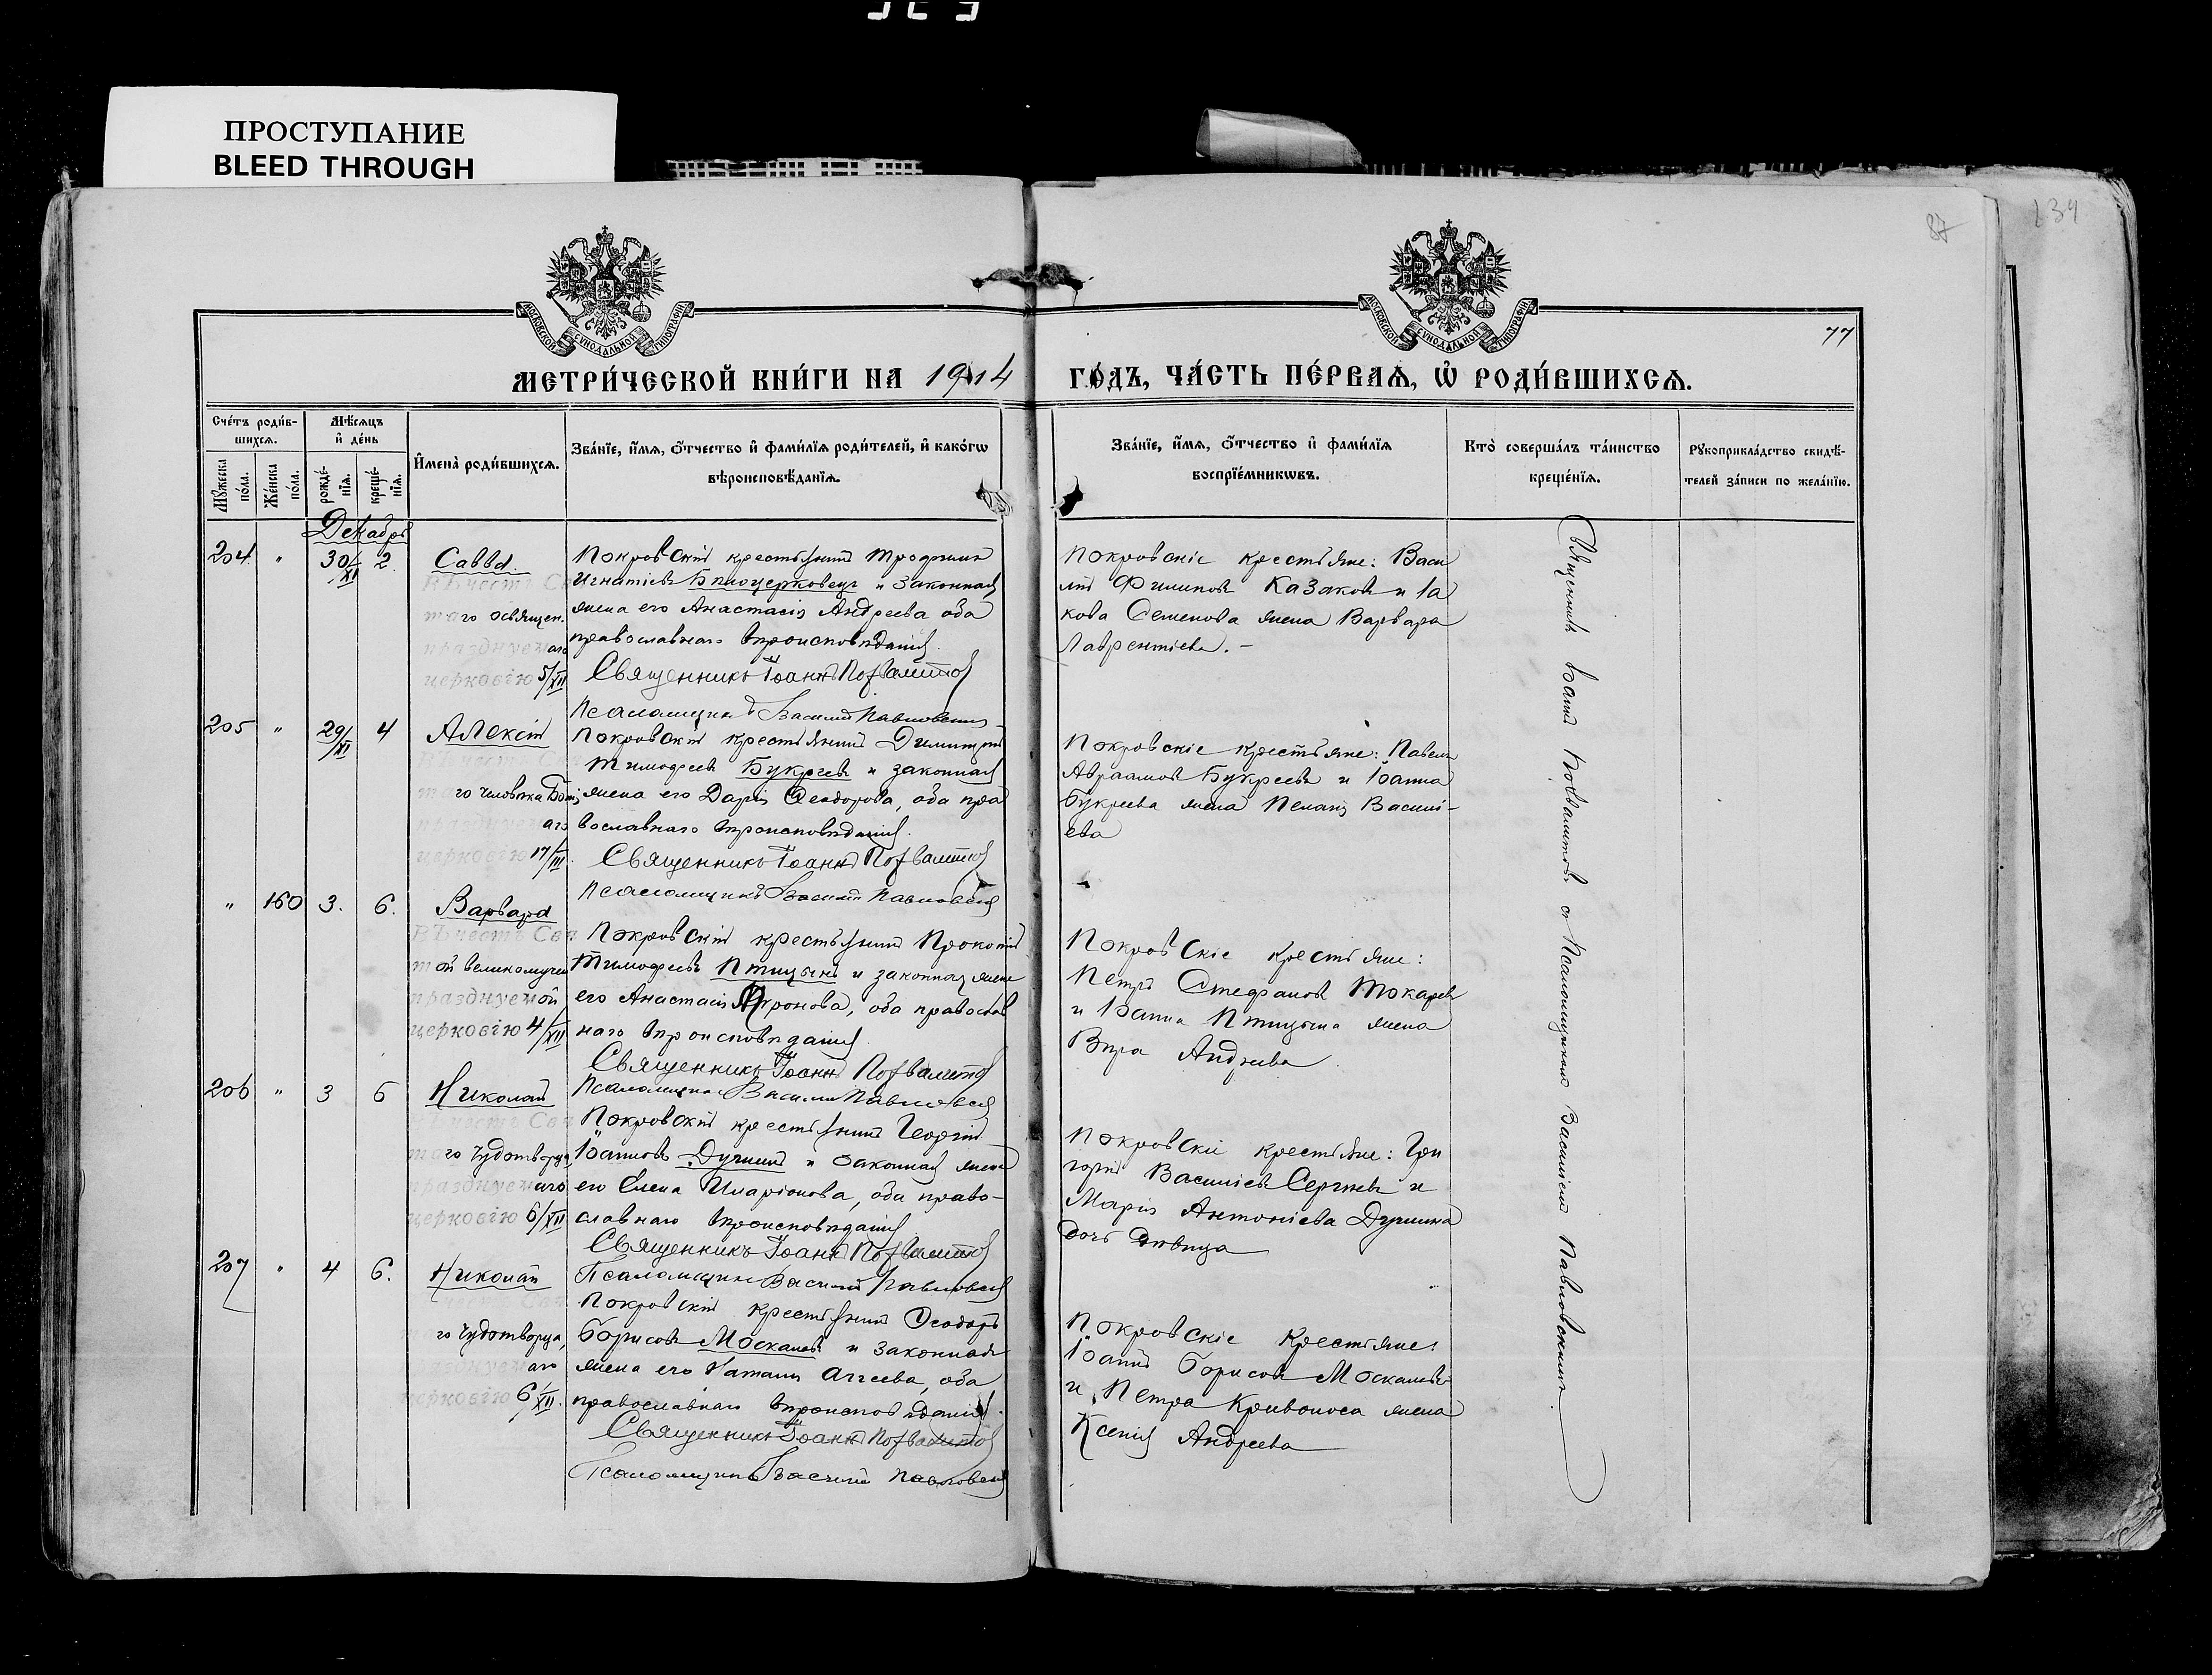 ПРОСТУПАНИЕ
BLEED THROUGH
87
134
77
МОСКОВСКОЙ СѴНОДАЛЬНОЙ ТИПОГРАФІИ
МОСКОВСКОЙ СѴНОДАЛЬНОЙ ТИПОГРАФІИ
МЕТРИ́ЧЕСКОЙ КНИ́ГИ НА 1914 ГО́ДЪ, ЧА́СТЬ ПЕ́РВАѦ, Ѡ҆ РОДИ́ВШИХСѦ.
Сче́тъ роди́в-
шихсѧ.
Мѣ́сѧцъ
и҆ де́нь
И҆мена̀ роди́вшихсѧ.
Зва́нїе, и҆́мѧ, о҆́тчество и҆ фами́лїѧ роди́телей, и҆ како́гѡ
вѣроисповѣ́данїѧ.
Зва́нїе, и҆́мѧ, о҆́тчество и҆ фами́лїѧ
воспрїе́мникѡвъ.
Кто̀ соверша́лъ та́инство
креще́нїѧ.
Рꙋкоприкла́дство свидѣ́-
телей за́писи по жела́нїю.
Мꙋ́жеска
по́ла.
Же́нска
по́ла.
рожде́-
нїѧ.
креще́-
нїѧ.
Декабрь
204 " 30/XI 2. Савва.
Въ честь Свя
таго освящен.
празднуемаго
церковію 5/XII
Покровскій крестьянинъ Трофимъ
Игнатіевъ Бѣлоцерковецъ и законная
жена его Анастасія Андреева оба
православнаго вѣроисповѣданія.
Священникъ Іоаннъ Похвалитовъ
Псаломщикъ Василій Павловскій
Покровскіе крестьяне: Васи
лій Филиповъ Казаковъ и Іа
кова Семенова жена Варвара
Лаврентіева. –
205 " 29/XI 4 Алексій
Въ честь Свя
таго человѣка Божія
празднуемаго
церковію 17/III.
Покровскій крестьянинъ Димитрій
Тимофеевъ Букреевъ и законная
жена его Дарія Ѳеодорова, оба пра
вославнаго вѣроисповѣданія.
Священникъ Іоаннъ Похвалитовъ
Псаломщикъ Василій Павловскій
Покровскіе крестьяне: Павелъ
Авраамовъ Букреевъ и Іоанна
Букреева жена Пелагія Василі-
ева
" 160 3. 6. Варвара
Въ честь Свя
той великомучен
празднуемой
церковію 4/XII
Покровскій крестьянинъ Прокопій
Тимофеевъ Птицынъ и законная жена
его Анастасія Миронова, оба православ
наго вѣроисповѣданія.
Священникъ Іоаннъ Похвалитовъ
Псаломщикъ Василій Павловскій
Покровскіе крестьяне:
Петръ Стефановъ Токаревъ
и Іоанна Птицына жена
Вѣра Андреева
206 " 3 6 Николай
Въ честь Свя
таго Чудотворца,
празднуемаго
церковію 6/XII
Покровскій крестьянинъ Георгій
Іоанновъ Дучинъ и законная жена
его Елена Иларіонова, оба право-
славнаго вѣроисповѣданія
Священникъ Іоаннъ Похвалитовъ
Псаломщикъ Василій Павловскій
Покровскіе крестьяне: Гри
горій Василіевъ Сергѣевъ и
Марія Антоніева Дучина
дочь дѣвица
207 " 4 6. Николай
честь Свя
го Чудотворца,
празднуемаго
церковію 6/XII.
Покровскій крестьянинъ Ѳеодоръ
Борисовъ Москалевъ и законная
жена его Наталія Аггеева, оба
православнаго вѣроисповѣданія.
Священникъ Іоаннъ Похвалитовъ
Псаломщикъ Василій Павловскій
Покровскіе крестьяне:
Іоаннъ Борисовъ Москалевъ
и Петра Кривоноса жена
Ксенія Андреева
Священникъ Іоаннъ Похвалитовъ съ Псаломщикомъ Василіемъ Павловскимъ.